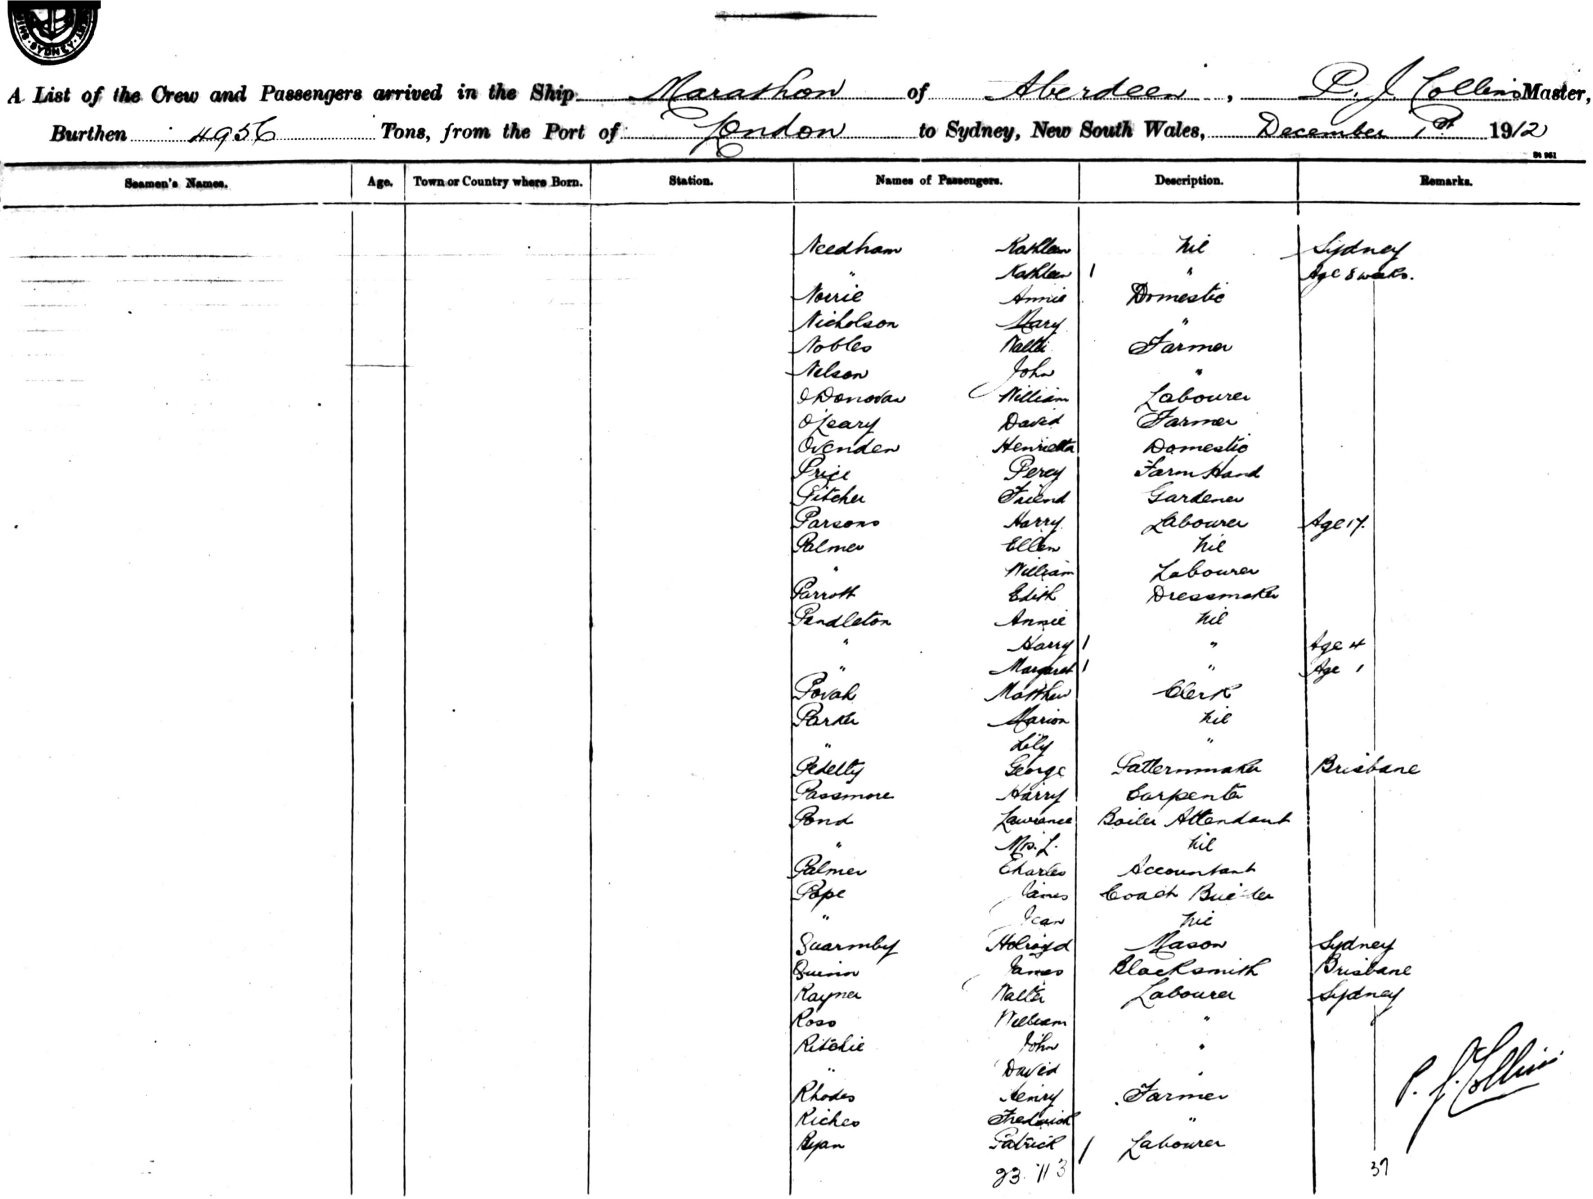 SYDNEY
A List of the Crew and Passengers arrived in the Ship Marathon of Aberdeen, P. J. Collins Master,
Burthen 4956 Tons, from the Port of London to Sydney, New South Wales, December 1st 1912
St 961
Seamen's Names. Age. Town or Country where Born. Station. Names of Passengers. Description. Remarks.
Needham Kathleen Nil Sydney
" Kathleen 1 " Age 8 weeks.
Norrie Annie Domestic
Nicholson Mary "
Nobles Walter Farmer
Nelson John "
O'Donovan William Labourer
O'Leary David Farmer
Ovenden Henrietta Domestic
Price Percy Farm Hand
Pitcher Friend Gardener
Parsons Harry Labourer Age 17.
Palmer Ellen Nil
" William Labourer
Parrott Edith Dressmaker
Pendleton Annie Nil
" Harry 1 " Age 4
" Margaret 1 " Age 1
Povah Matthew Clerk
Parker Marion Nil
" Lily "
Pedelty George Patternmaker Brisbane
Passmore Harry Carpenter
Pond Lawrance Boiler Attendant
" Mrs. L. Nil
Palmer Charles Accountant
Pope James Coach Builder
" Jean Nil
Quarmby Holroyd Mason Sydney
Quinn James Blacksmith Brisbane
Rayner Walter Labourer Sydney
Ross William "
Ritchie John "
" David "
Rhodes Henry Farmer
Riches Frederick "
Ryan Patrick 1 Labourer
P. J. Collins
23 11 3 37